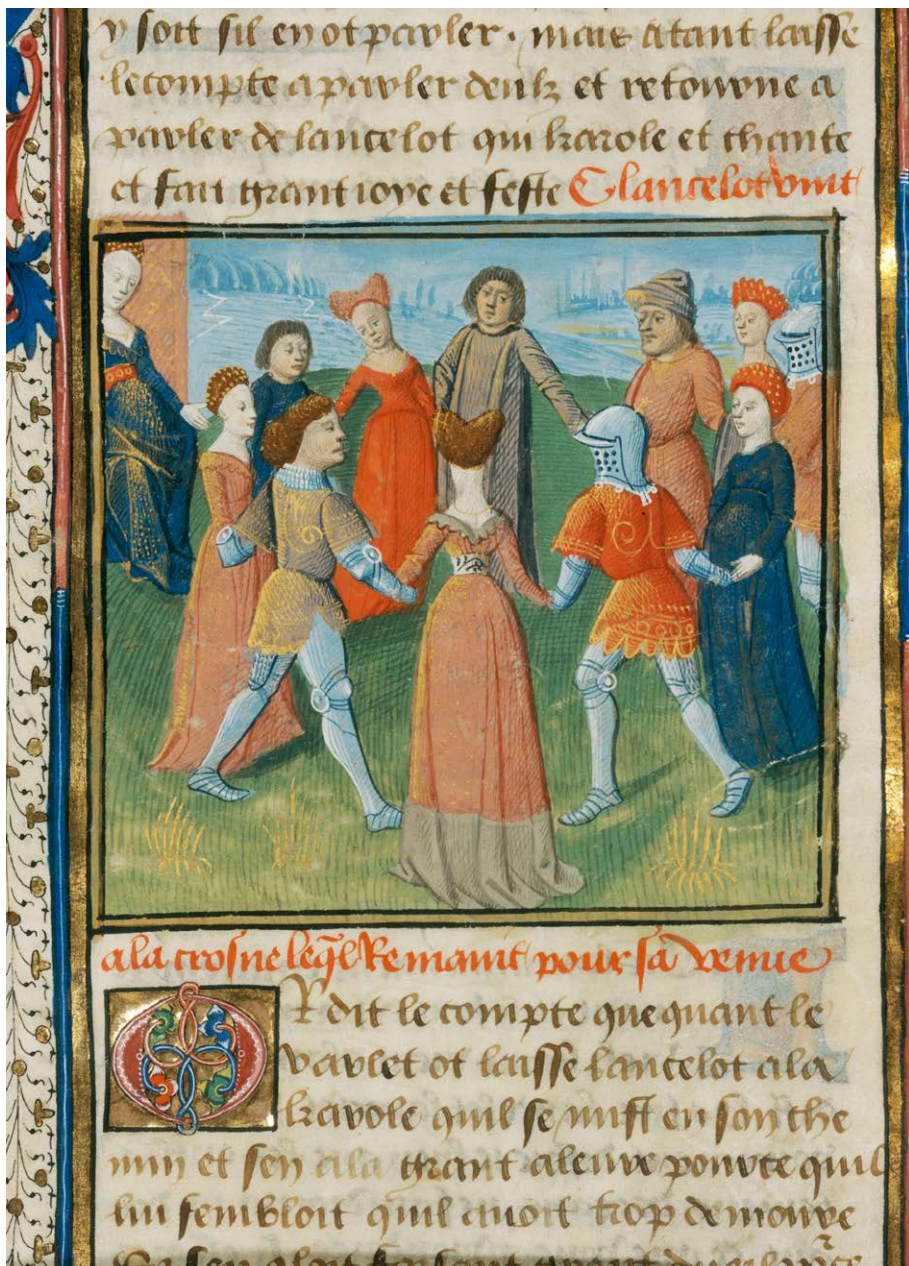 y soit sil en ot parler . mais atant laisse
le compte a parler deulz et retourne a
parler de lancelot qui karole et chante
et fait grant ioye et feste Clancelot vint
a la crosne leql Remaint pour sa venue
Or dit le compte que quant le
varlet ot laisse lancelot a la
karole quil se mist en son che
min et sen ala grant aleure pource quil
lui sembloit quil auoit trop demoure